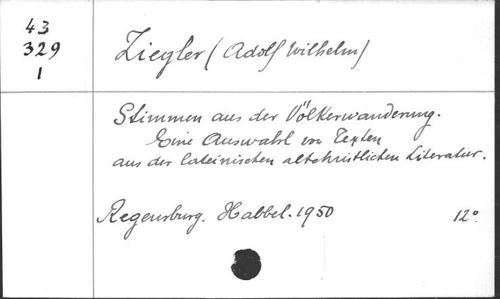 43
329
1
Ziegler (Adolf Wilhelm)
Stimmen aus der Völkerwanderung.
Eine Auswahl von Texten
aus der lateinischen altchristlichen Literatur.
Regensburg. Habbel. 1950
12°